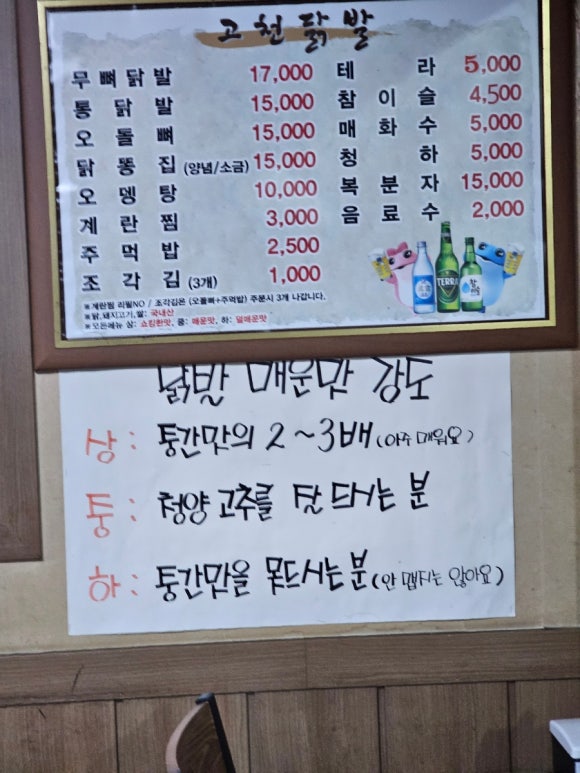 고천닭발
무뼈닭발 17,000
통닭발 15,000
오돌뼈 15,000
닭똥집 (양념/소금) 15,000
오뎅탕 10,000
계란찜 3,000
주먹밥 2,500
조각김 (3개) 1,000
테라 5,000
참이슬 4,500
매화수 5,000
청하 5,000
복분자 15,000
음료수 2,000
TERRA
※계란찜 리필NO / 조각김은 (오돌뼈+주먹밥) 주문시 3개 나갑니다.
※닭,돼지고기,쌀: 국내산
※모든메뉴 상: 쇼킹한맛, 중: 매운맛, 하: 덜매운맛
닭발 매운맛 강도
상: 중간맛의 2~3배 (아주 매워요)
중: 청양고추를 잘 드시는 분
하: 중간맛을 못드시는분 (안 맵지는 않아요)